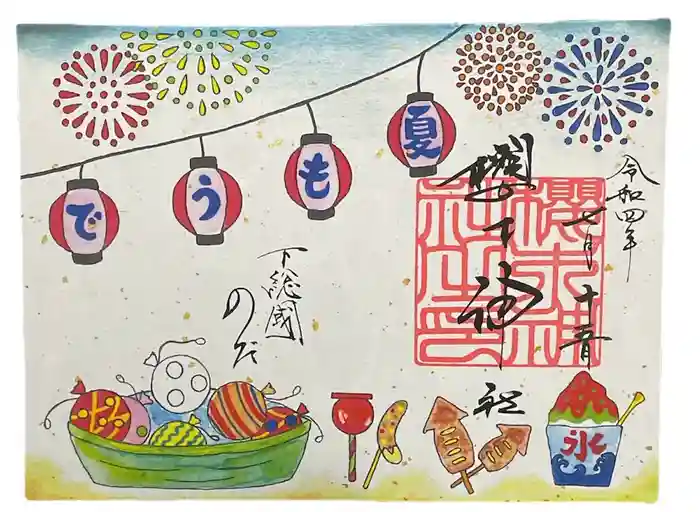 令和四年
七月
櫻木神社
櫻木神
社之印
夏もうで
下総國
のだ
氷